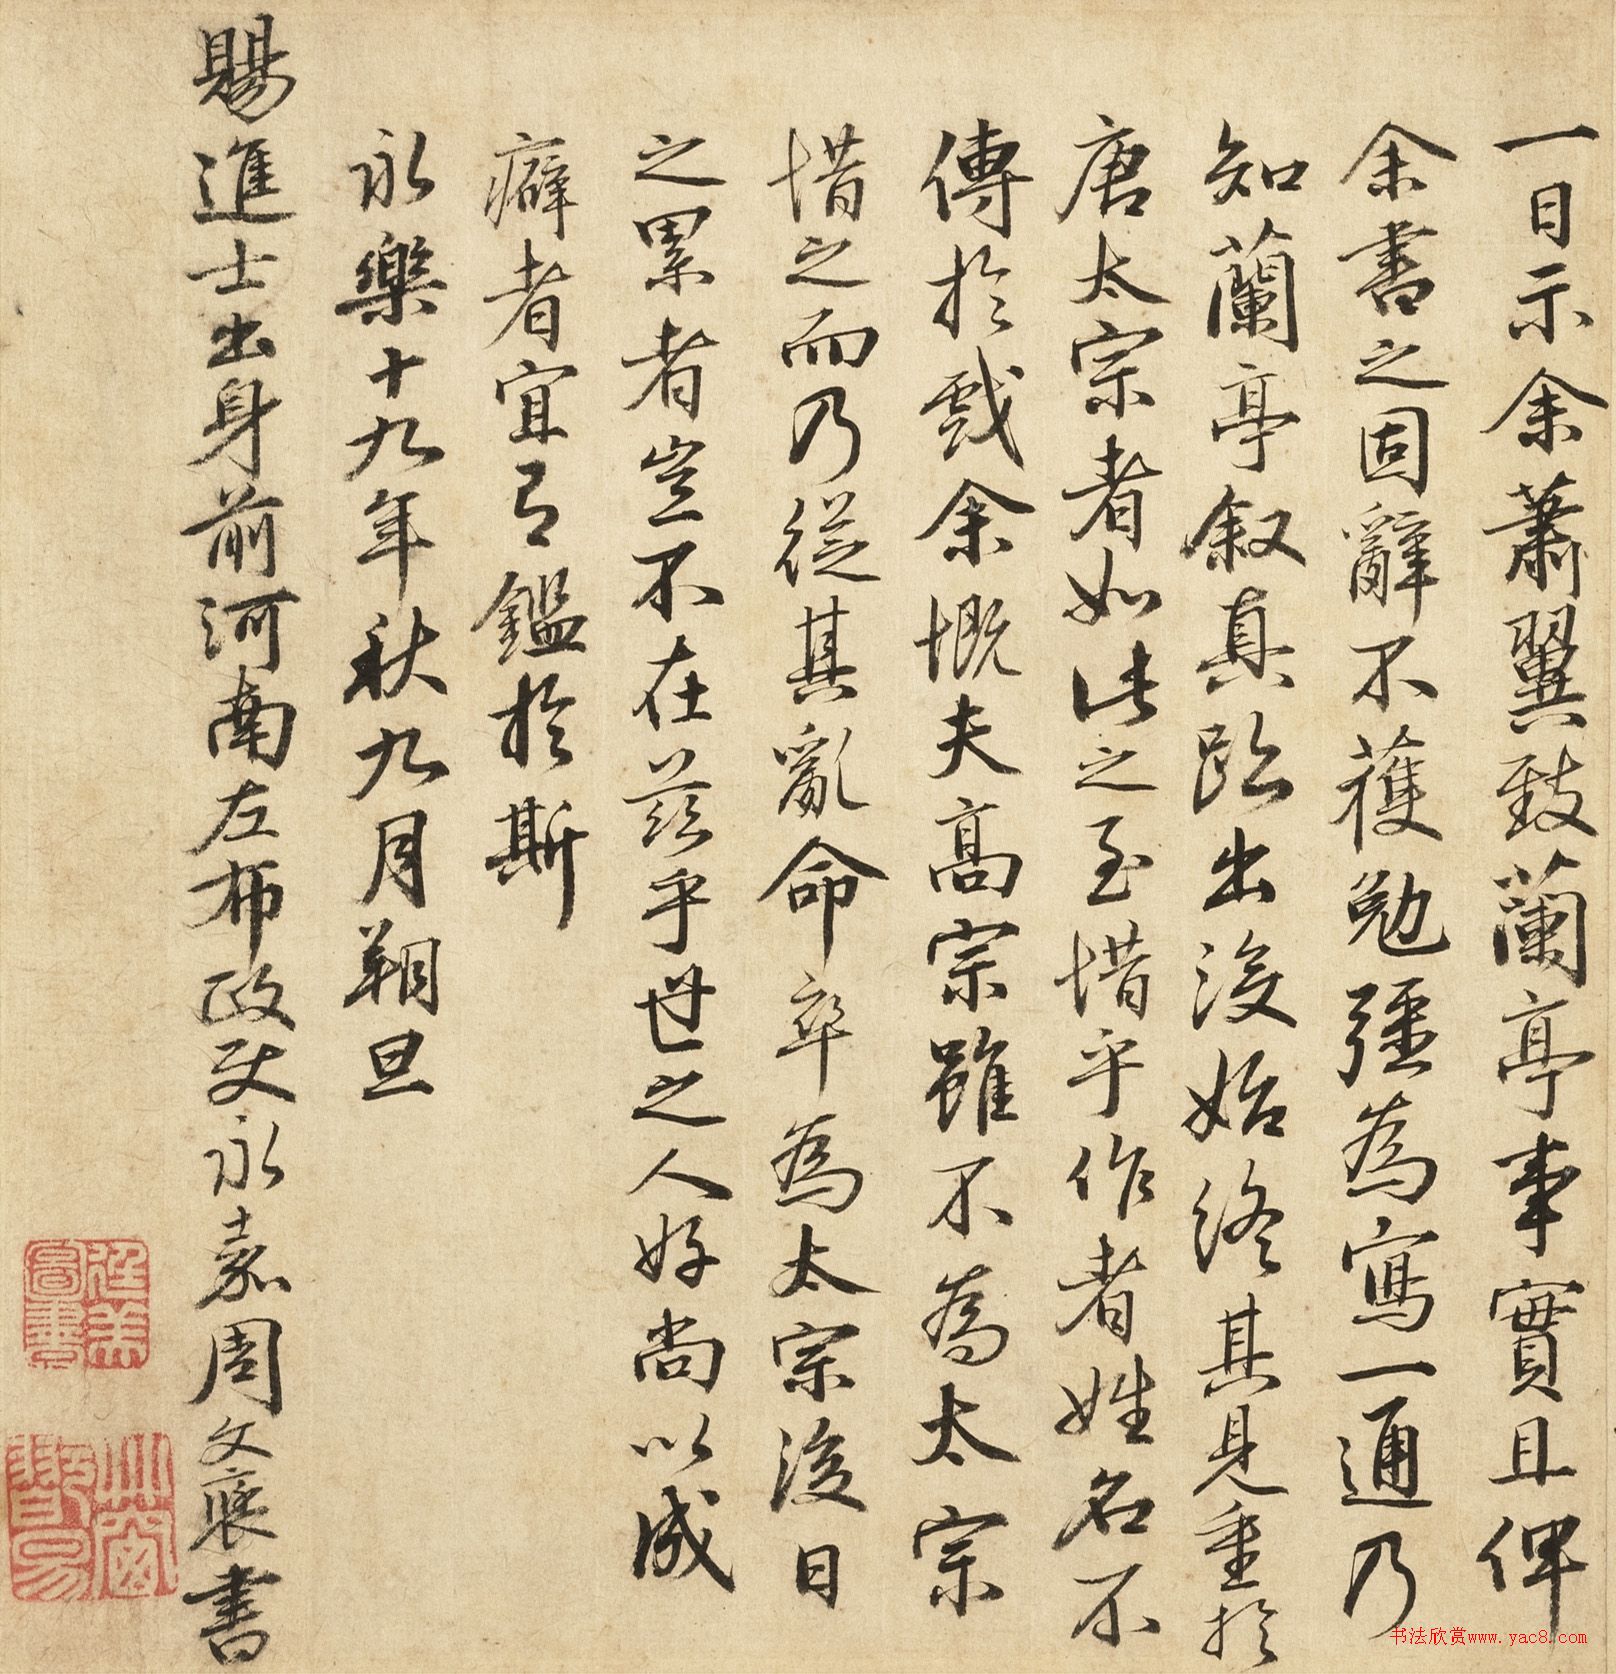 一日示余蕭翼致蘭亭事實且俾
余書之固辭不獲勉彊為寫一通乃
知蘭亭叙真跡出後始終其見重於
唐太宗者如此之至惜乎作者姓名不
傳於戲余慨夫高宗雖不為太宗
惜之而乃從其亂命卒為太宗後日
之累者豈不在茲乎世之人好尚以成
癖者宜有鑑於斯
永樂十九年秋九月朔旦
賜進士出身前河南左布政史永嘉周文褒書
书法欣赏www.yac8.com